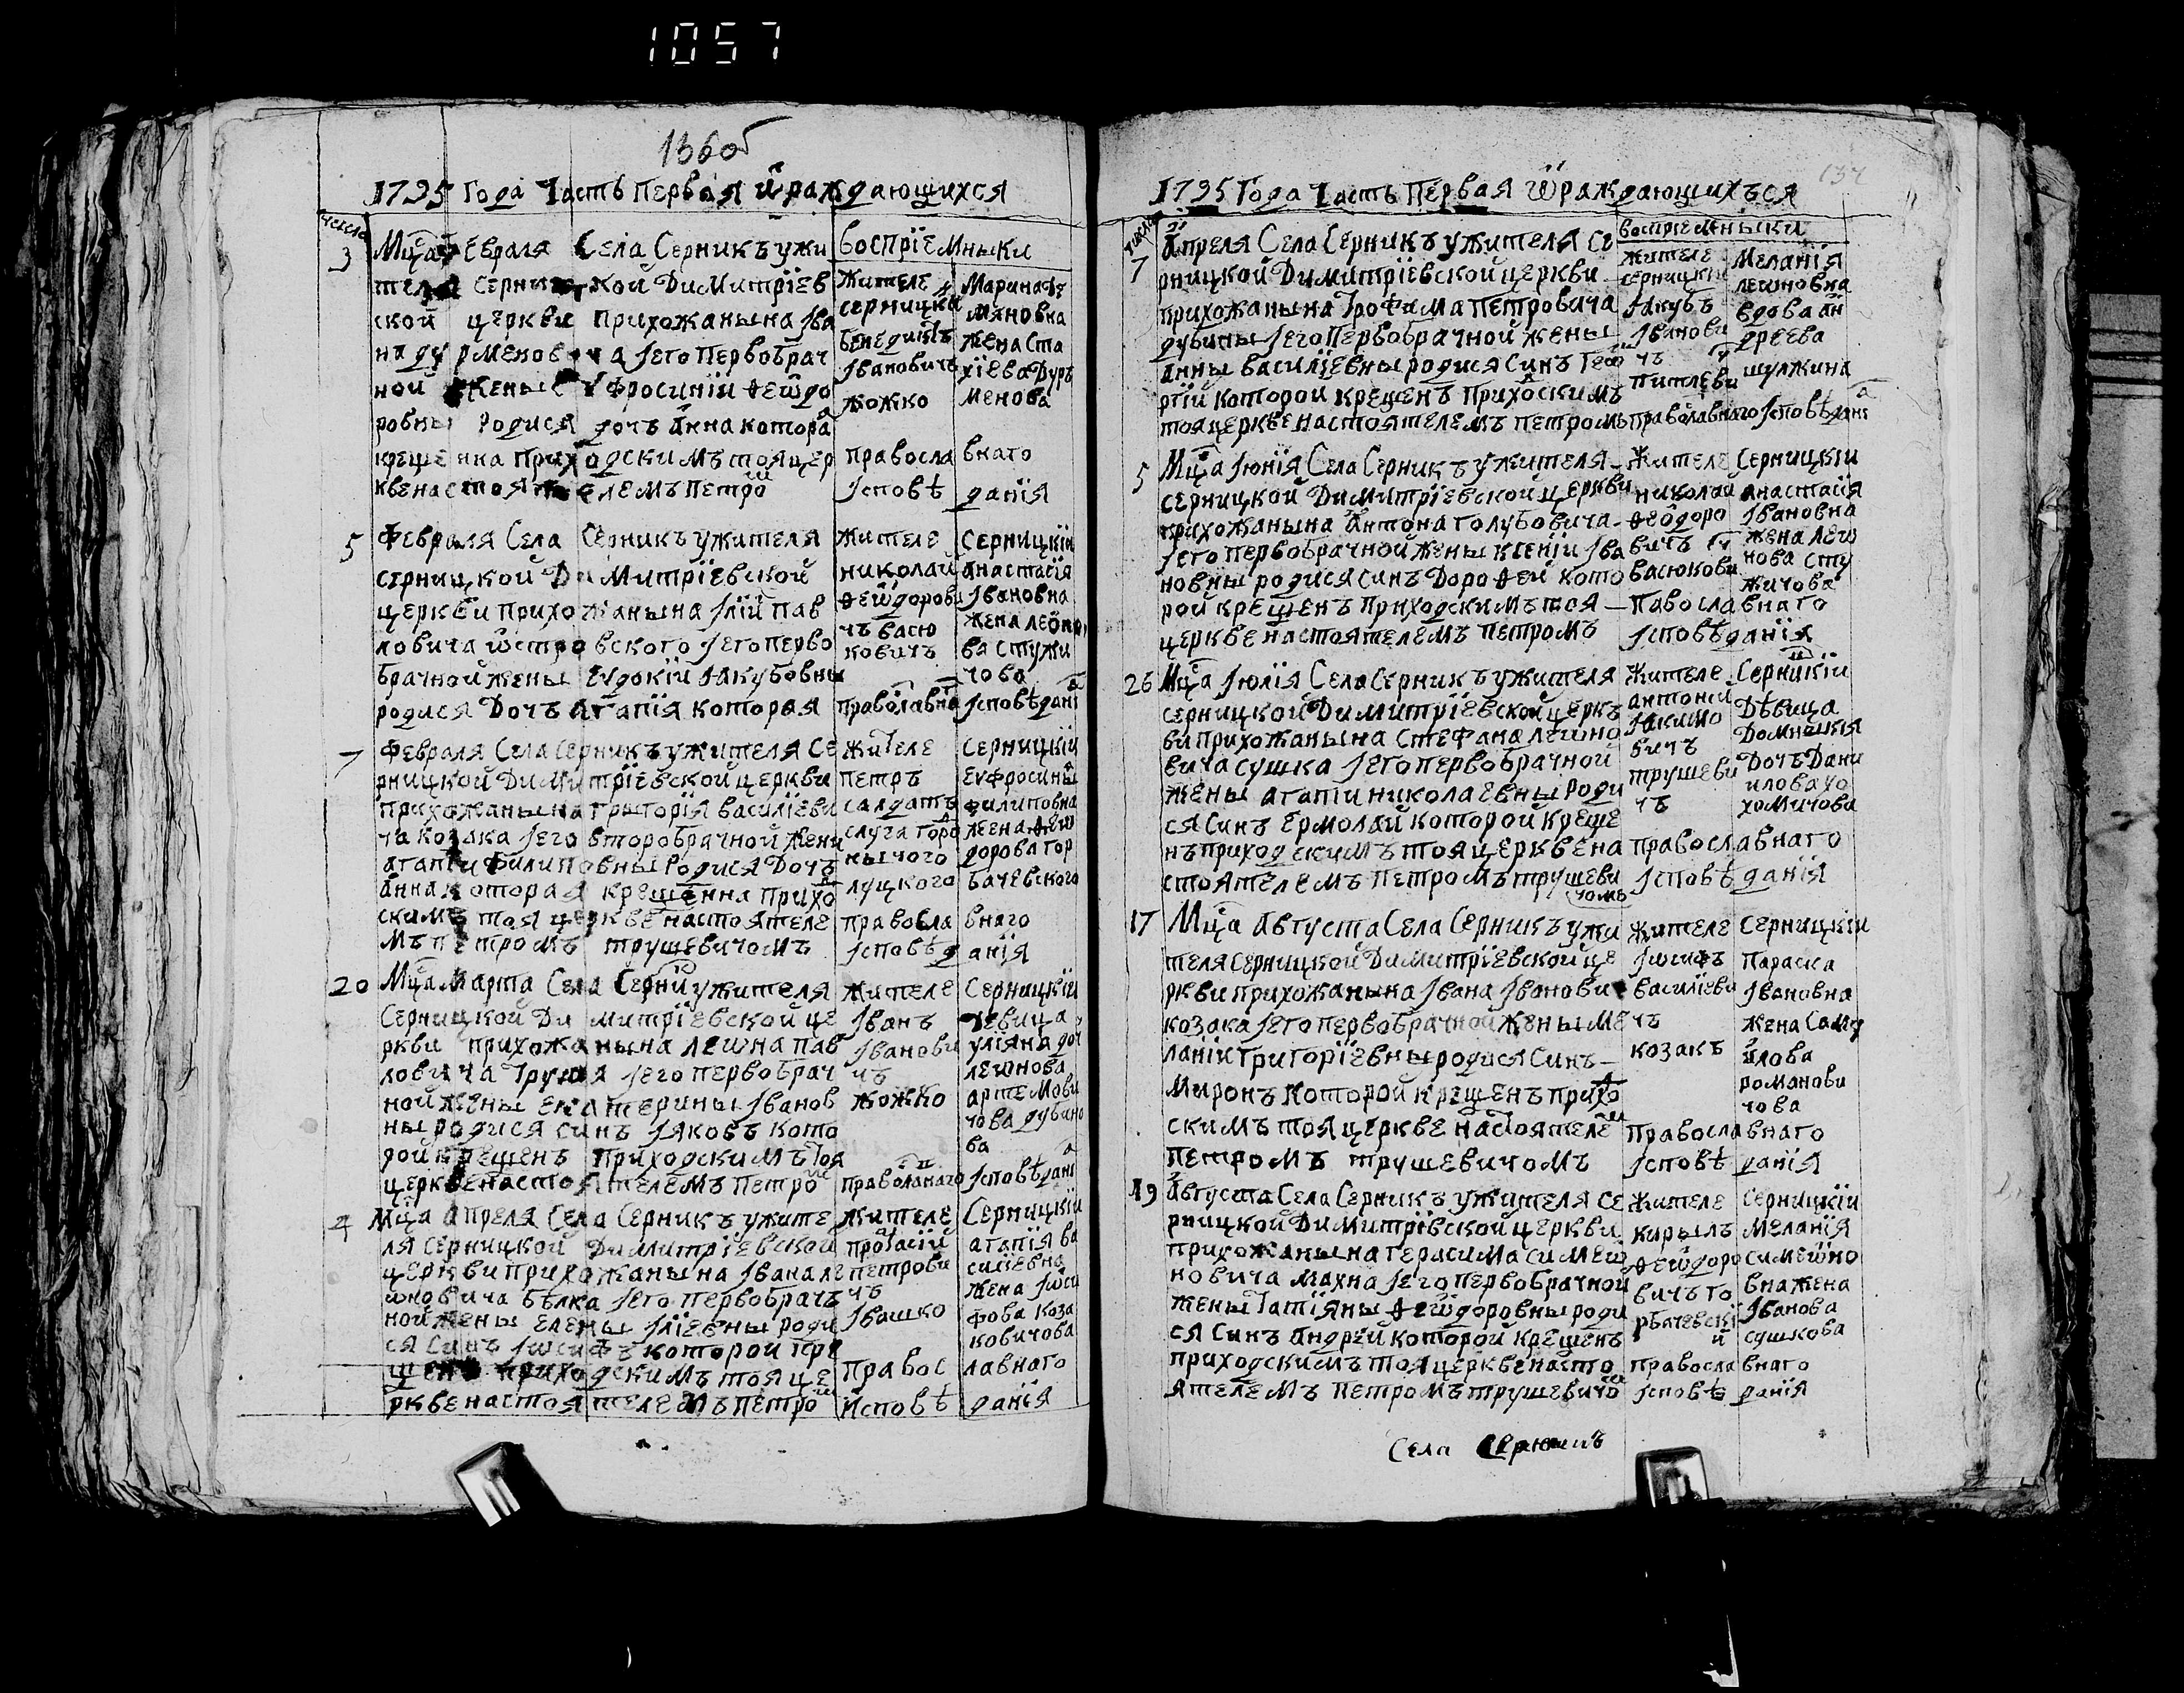 1057
136об
1795 Года Часть Первая ѿ раждающихся
числа
3
Мца Февраля Села Серникъ ужи
теля Серницкой Димитріев
ской церкви прихожанына Іва
на Дурменовича Іего Первобрач
ной жены Еѵфросиніи Ѳеѡдо
ровны Родися дочъ Анна котора
крещенна Приходскимъ тоя цер
кве настоятелемъ Петро
воспріемныки
Жителе Серницки
Бенедиктъ Івановичъ Жожко
Марина Дe
мяновна
жена Ста
хіева Дурменова
православнаго
Ісповѣданія
5
Февраля Села Серникъ ужителя
серницкой Димитріевской
церкви прихожанына Іліи Пав
ловича Ѡстровского Іего перво
брачной жены Еѵдокіи Якубовны
родися Дочъ Агапія которая
жителе Серницкіи
николай Ѳеѡдорови
чъ васю
ковичъ
Анастасія
Івановна
жена леѡно
ва Стужи
чова
православна Ісповѣдані
7
Февраля Села Серникъ ужителя Се
рницкой Димитріевской церкви
прихожанына Грыгорія василіеви
ча козака Іего второбрачной жени
агапіи Филиповны Родися Дочъ
Анна которая крещенна прихо
скимъ тоя церкве настоятеле
мъ петромъ трушевичомъ
жителе Серницкіи
петръ
салдатъ
слуга горо
луцкого
Еѵфросины
филиповна
жена Ѳеѡ
дорова гор
бачевского
православнаго
Ісповѣданія
20
Мца Марта Села Серни ужителя
Серницкой Димитріевской це
ркви прихожанына Леѡна пав
ловича Іего первобрач
ной жены Екатерины Іванов
ны родися синъ Іяковъ кото
рой крещенъ приходскимъ тоя
церкве настоятелемъ Петро
жителе Серницкіи
Іванъ
Іванови
чъ
жожко
девица
уліяна доч
леѡнова
артемови
чова дубино
ва
Ісповѣдані
4
Мца Апреля Села Серникъ ужите
ля серницкой Димитріевской
церкви прихожанына Івана ле
ѡновича Бѣлка Іего первобрачъ
ной жены Елены Іліевны роди
ся Синъ Іѡсифъ которой кре
щенъ приходскимъ тоя це
ркве настоятелемъ Петро
жителе Серницкіи
протасій
петрови
чъ
Івашко
агапія ва
силіевна
жена Іѡси
фова коза
ковичова
православнаго
Исповѣданія
137
1795 Года Часть Первая ѿ раждающихъся
числа
7
Апреля Села Серникъ ужителя Се
рницкой Димитріевской церкви
прихожанына Трофима Петровича
дубины Іего Первобрачной жены
Анны василіевны родися Синъ Гео
ргій которои крещенъ Прихоскимъ
тоя церкве настоятелемъ петромъ
воспріемныки
жителе
серницкіи
Якубъ
Іванови
чъ
Меланія
леѡновна
вдова ан
дреева
шулжина
православнаго Ісповѣдані
5
Мца Іюнія Села Серникъ ужителя
серницкой Димитріевской церкви
прихожанына Антона голубовича
Іего первобрачной жены ксеніи Іва
новны родися синъ Дороѳей кото
рой крещенъ приходскимъ тоя
церкве настоятелемъ петромъ
жителе Серницкіи
николай
Ѳеодоро
вичъ
васюкови
анастасія
Івановна
жена Леѡ
нова Сту
жичова
Павославнаго
Ісповѣданія
26
Мца Іюлія Села Серникъ ужителя
серницкой Димитріевской церк
ви прихожанына Стефана леѡно
вича сушка Іего первобрачной
жены агапіи николаевны роди
ся Синъ Ермолай которой креще
нъ приходскимъ тоя церкве на
стоятелемъ петромъ трушеви
чомъ
Жителе Серникіи
антоній
Якимо
вичъ
трушеви
чъ
Дѣвица
Домныкія
Дочъ Дани
илова хо
хомичова
православнаго
Ісповѣданія
17
Мца августа Села Серникъ ужи
теля серницкой Димитріевской це
ркви прихожанына Івана Іванови
козака Іего первобрачной жены Ме
ланіи Григоріевны родися Синъ
миронъ которой крещенъ прихо
скимъ тоя церкве настоятеле
петромъ трушевичомъ
жителе Серницкіи
Іѡсифъ
василіеви
чъ
козакъ
Параска
Івановна
жена Саму
йлова
романови
чова
православнаго
Ісповѣданія
19
Августа Села Серникъ ужителя се
рницкой Димитріевской церкви
прихожанына герасима симеѡ
новича махна Іего первобрачной
жены татіяны Ѳеѡдоровны роди
ся Синъ андрей которой крещенъ
приходскимъ тоя церкве насто
ятелемъ петромъ трушевичо
жителе Серницкіи
кирылъ
Ѳеѡдоро
вичъ го
рбачевскі
й
Меланія
симеѡно
вна жена
Іванова
сушкова
православнаго
Ісповѣданія
Села Серникъ